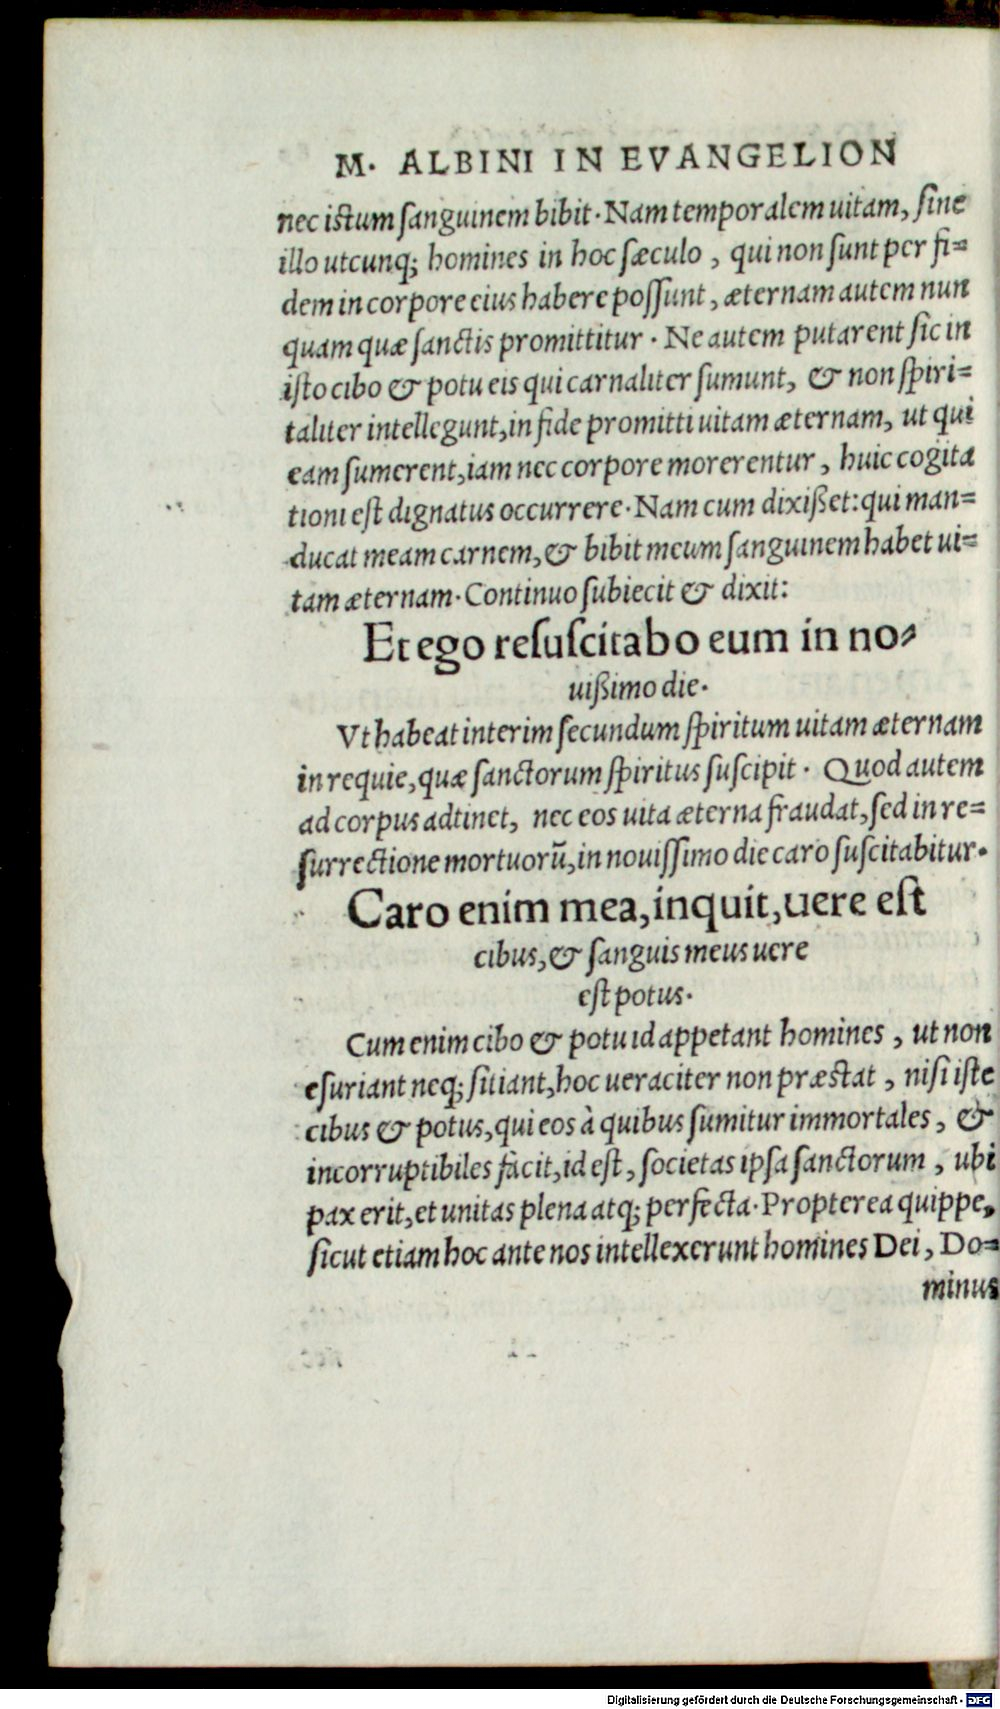 M. ALBINI IN EVANGELION
nec istum ſanguinem bibit. Nam temporalem uitam, ſine
illo utcunq; homines in hoc ſæculo, qui non ſunt per fi=
dem in corpore eius habere poſſunt, æternam autem nun
quam quæ ſanctis promittitur. Ne autem putarent ſic in
iſto cibo & potu eis qui carnaliter ſumunt, & non ſpiri=
taliter intellegunt, in fide promitti uitam æternam, ut qui
eam ſumerent, iam nec corpore morerentur, huic cogita
tioni eſt dignatus occurrere. Nam cum dixißet: qui man=
ducat meam carnem, & bibit meum ſanguinem habet ui=
tam æternam. Continuo ſubiecit & dixit:
Et ego reſuſcitabo eum in no=
uißimo die.
Vt habeat interim ſecundum ſpiritum uitam æternam
in requie, quæ ſanctorum ſpiritus ſuſcipit. Quod autem
ad corpus adtinet, nec eos uita æterna fraudat, ſed in re=
ſurrectione mortuorũ, in nouiſſimo die caro ſuſcitabitur.
Caro enim mea, inquit, uere eſt
cibus, & ſanguis meus uere
eſt potus.
Cum enim cibo & potu id appetant homines, ut non
eſuriant neq; ſitiant, hoc ueraciter non præſtat, niſi iſte
cibus & potus, qui eos à quibus ſumitur immortales, &
incorruptibiles facit, id eſt, ſocietas ipſa ſanctorum, ubi
pax erit, et unitas plena atq; perfecta. Propterea quippe,
ſicut etiam hoc ante nos intellexerunt homines Dei, Do=
minus
Digitalisierung gefördert durch die Deutsche Forschungsgemeinschaft - DFG